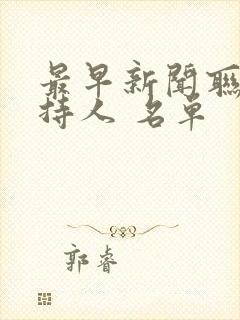 最早新聞聯
持人 名單
郭睿